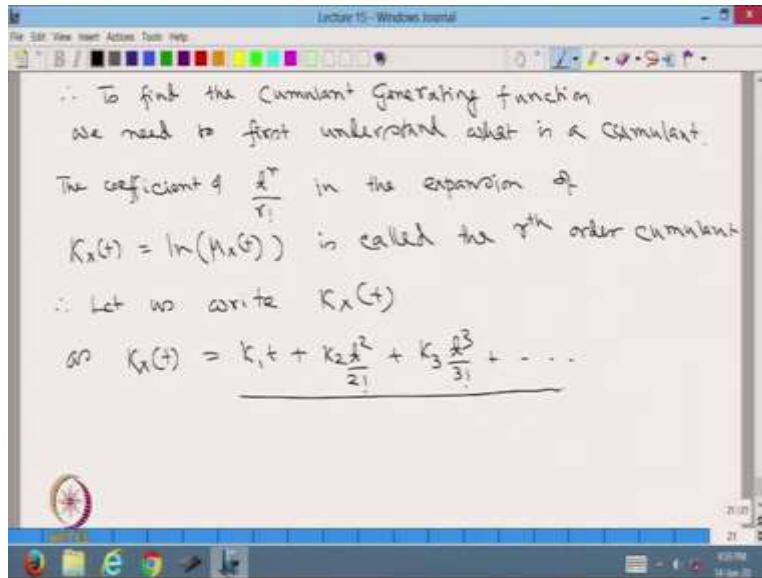 Lecture 15 - Windows Journal
File Edit View Insert Actions Tools Help
∴ To find the Cumulant Generating function
we need to first understand what is a cumulant.
The coefficient of t^r/r! in the expansion of
K_x(t) = ln(M_x(t)) is called the r^th order cumulant
∴ Let us write K_x(t)
as K_x(t) = K_1 t + K_2 t^2/2! + K_3 t^3/3! + - - - .
21